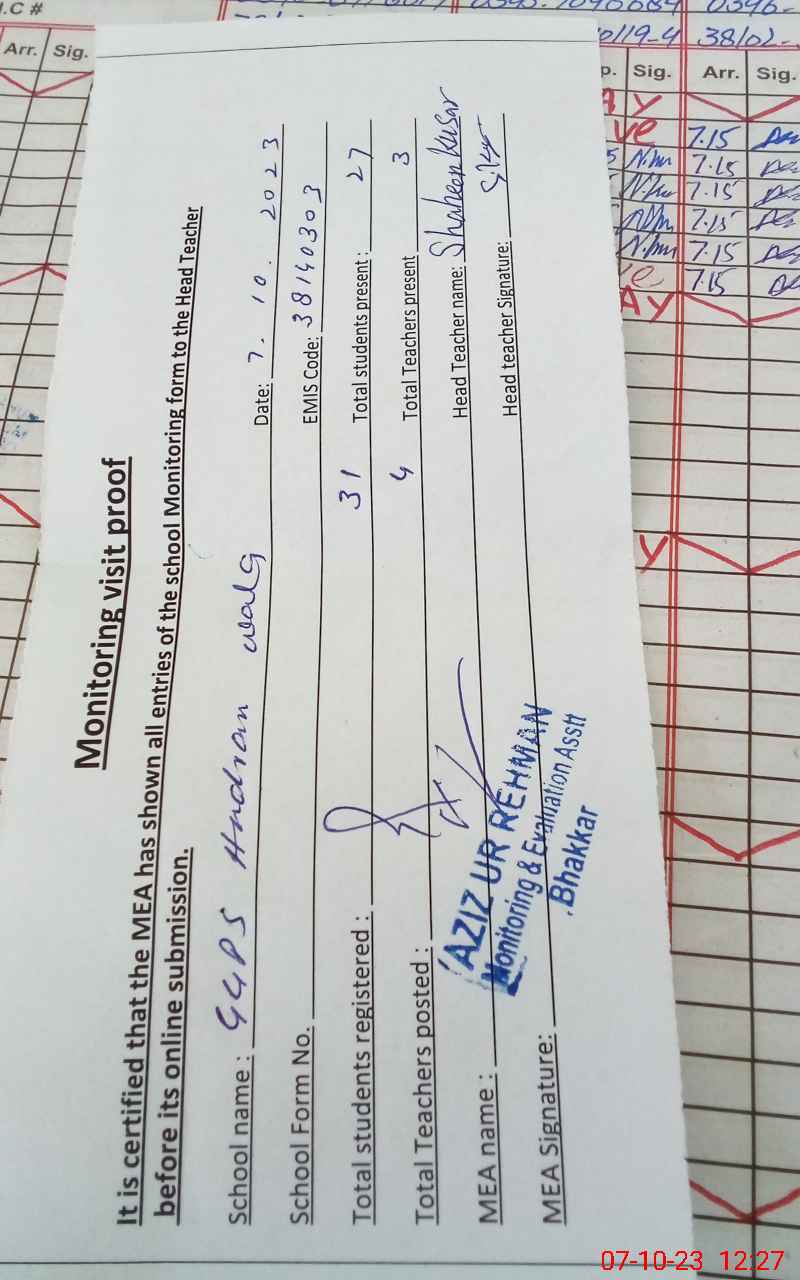 Monitoring visit proof
It is certified that the MEA has shown all entries of the school Monitoring form to the Head Teacher
before its online submission.
School name : GGPS Hndran wala Date: 7. 10. 2023
School Form No. EMIS Code: 38140303
Total students registered : 31 Total students present : 27
Total Teachers posted : 4 Total Teachers present 3
MEA name : Head Teacher name: Shaheen Kusar
MEA Signature: Head teacher Signature:
AZIZ UR REHMAN
Monitoring & Evaluation Asstt
Bhakkar
I.C #
Arr. Sig.
p. Sig. Arr. Sig.
7.15
7.15
7.15
7.15
7.15
7.15
07-10-23 12:27